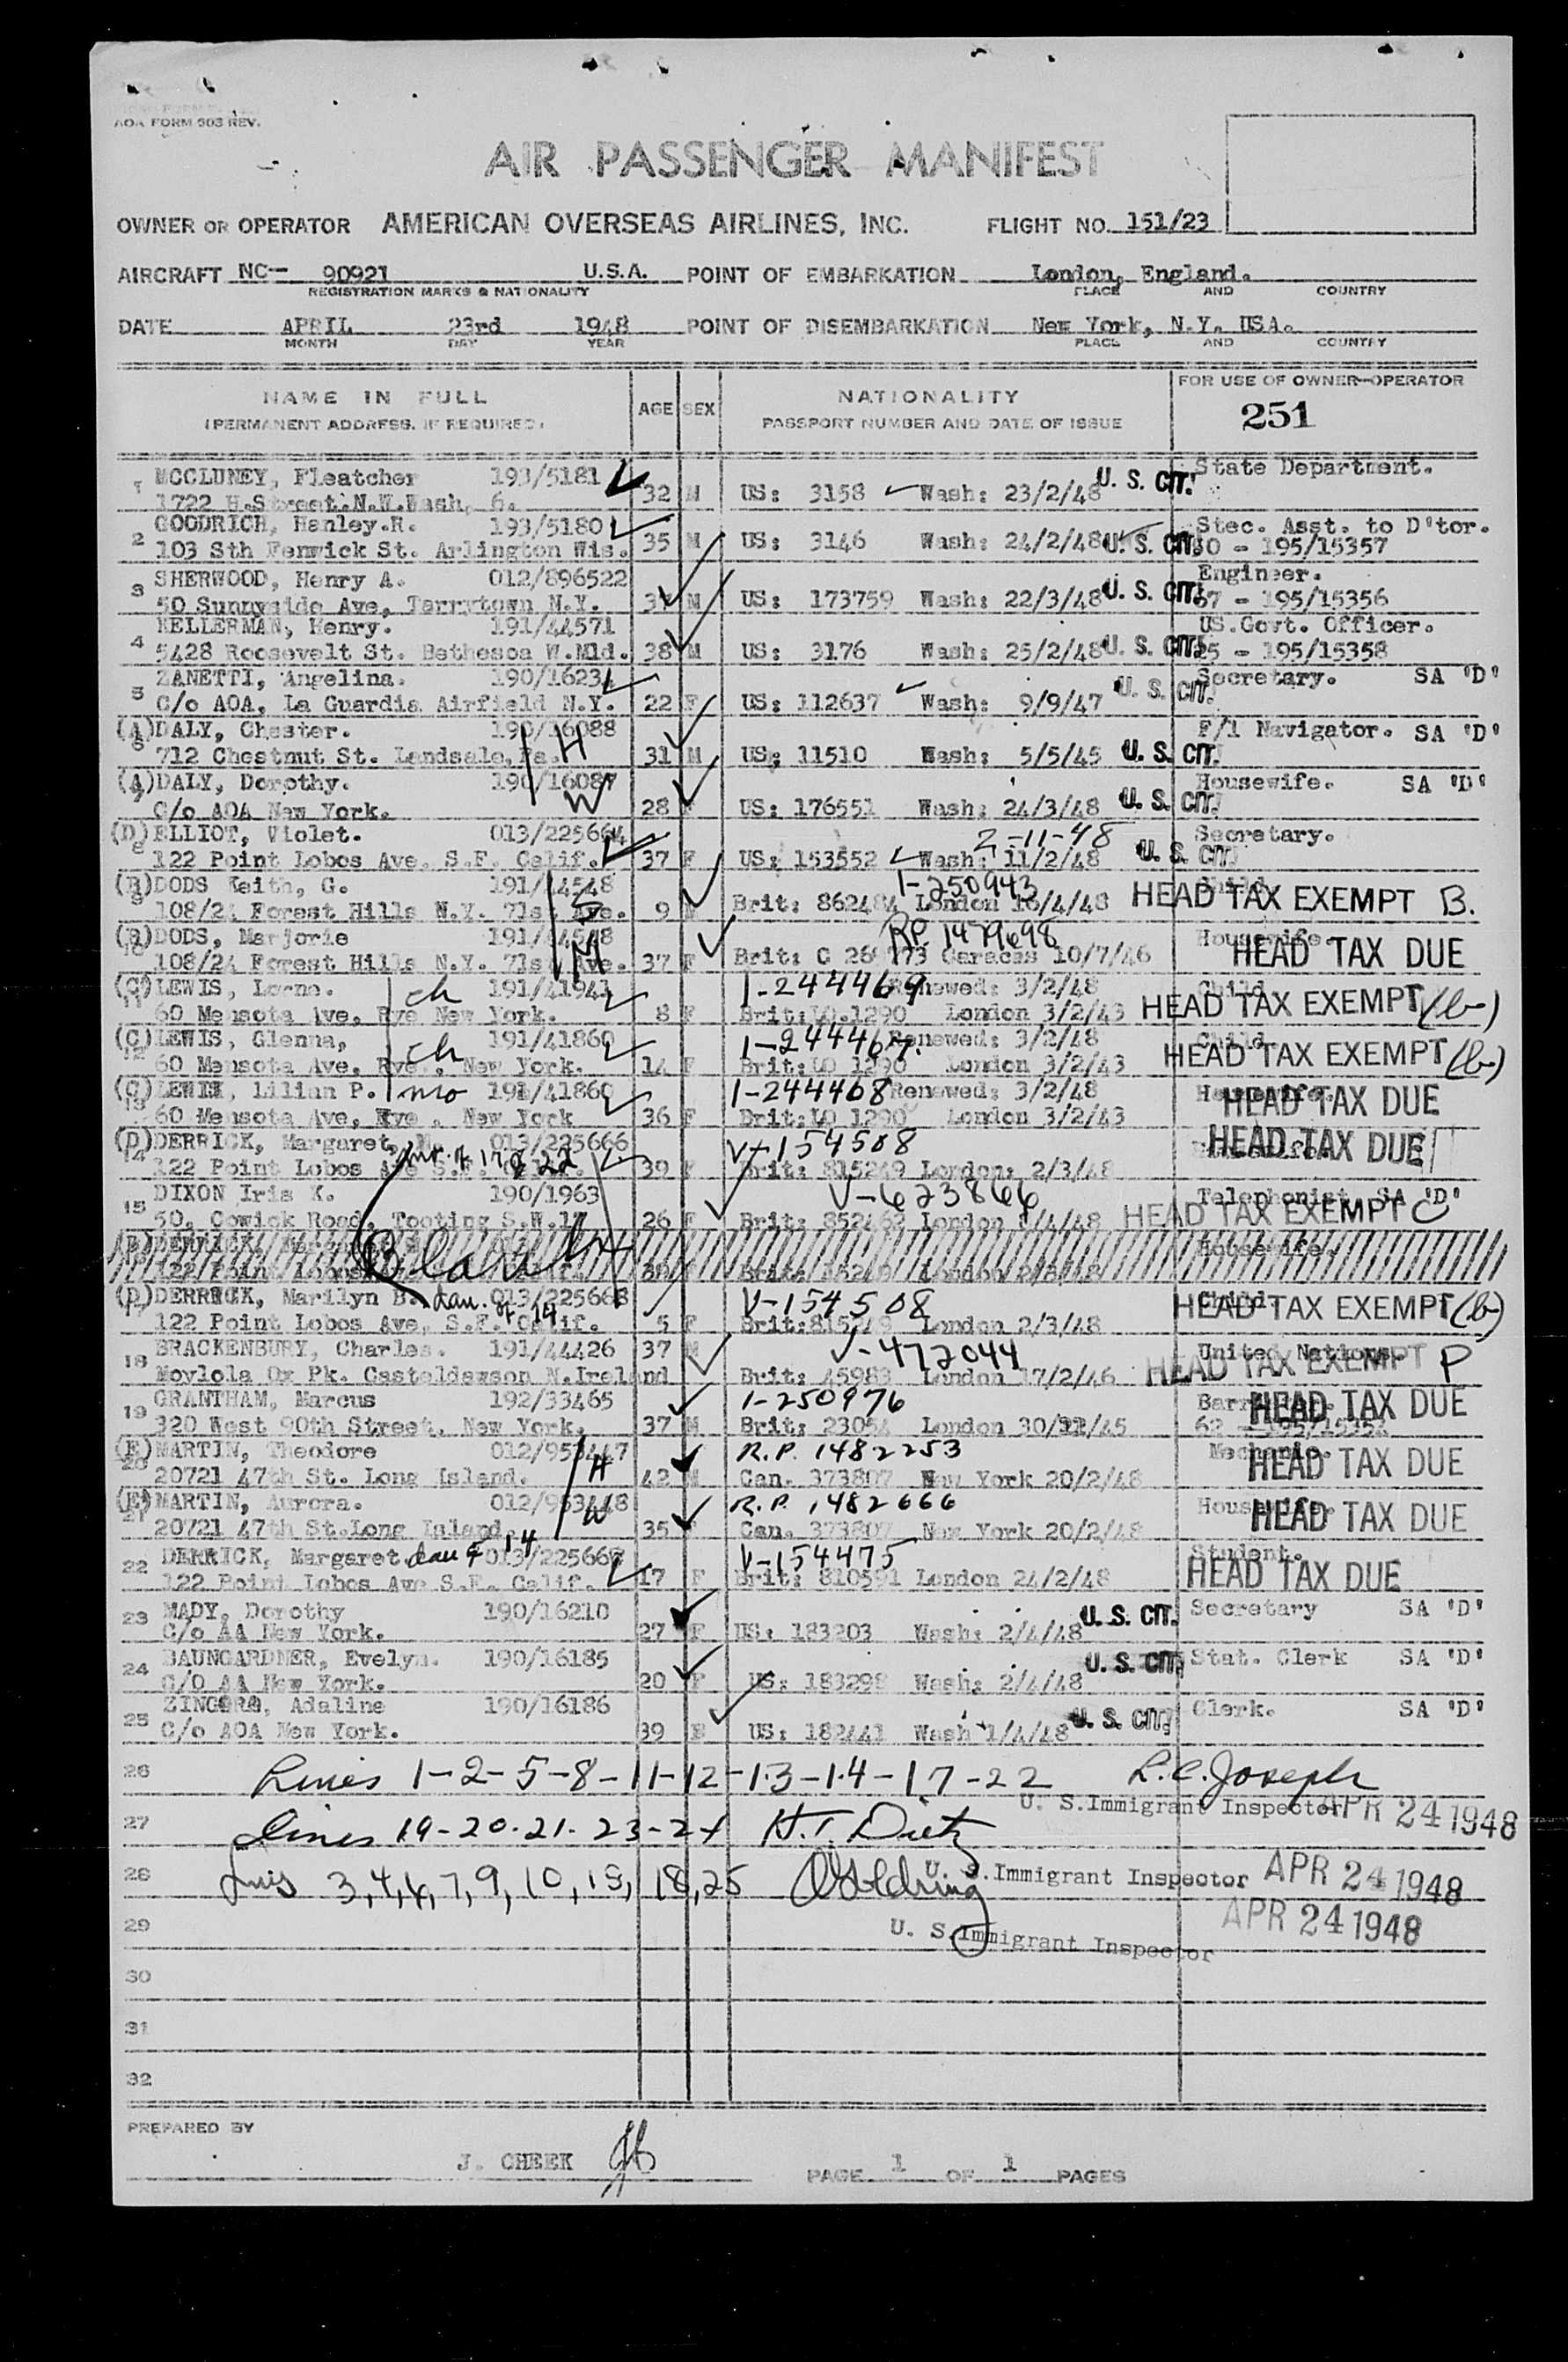 AOA FORM 503 REV.
AIR PASSENGER MANIFEST
OWNER OR OPERATOR AMERICAN OVERSEAS AIRLINES, INC. FLIGHT NO. 151/23
AIRCRAFT NC- 90921 U.S.A. POINT OF EMBARKATION London, England.
REGISTRATION MARKS & NATIONALITY PLACE AND COUNTRY
DATE APRIL 23rd 1948 POINT OF DISEMBARKATION New York, N.Y. USA.
MONTH DAY YEAR PLACE AND COUNTRY
NAME IN FULL AGE SEX NATIONALITY FOR USE OF OWNER-OPERATOR
(PERMANENT ADDRESS, IF REQUIRED) PASSPORT NUMBER AND DATE OF ISSUE 251
1 MCCLUNEY, Fleatcher 193/5181 State Department.
1722 H.Street.N.W.Wash, 6. 32 M US: 3158 Wash: 23/2/48 U. S. CIT.
2 GOODRICH, Hanley.R. 193/5180 Stec. Asst. to D'tor.
103 Sth Fenwick St. Arlington Wis. 35 M US: 3146 Wash: 24/2/48 U. S. CIT. - 195/15357
3 SHERWOOD, Henry A. 012/896522 Engineer.
50 Sunnyside Ave, Tarrytown N.Y. M US: 173759 Wash: 22/3/48 U. S. CIT. 67 - 195/15356
4 KELLERMAN, Henry. 191/44571 US.Govt. Officer.
5428 Roosevelt St. Bethesca W.Mld. 38 M US: 3176 Wash: 25/2/48 U. S. CIT. - 195/15358
5 ZANETTI, Angelina. 190/16234 Secretary. SA 'D'
C/o AOA, La Guardia Airfield N.Y. 22 F US: 112637 Wash: 9/9/47 U. S. CIT.
(A) DALY, Chester. 190/16088 F/l Navigator. SA 'D'
6 712 Chestnut St. Landsale, Pa. H 31 M US: 11510 Wash: 5/5/45 U. S. CIT.
(A) DALY, Dorothy. 190/16087 Housewife. SA 'D'
7 C/o AOA New York. W 28 F US: 176551 Wash: 24/3/48 U. S. CIT.
(D) ELLIOT, Violet. 013/225664 2-11-48 Secretary.
8 122 Point Lobos Ave. S.F. Calif. 37 F US: 153552 Wash: 11/2/48 U. S. CIT
(B) DODS Keith, G. 191/44548 1-250943 Child
9 108/24 Forest Hills N.Y. 71st Ave. S 9 M Brit: 862484 London 16/4/48 HEAD TAX EXEMPT B.
(B) DODS, Marjorie 191/44548 RP 1479698 Housewife
10 108/24 Forest Hills N.Y. 71st Ave. M 37 F Brit: C 26 173 Caracas 10/7/46 HEAD TAX DUE
(C) LEWIS, Lorna. ch 191/41941 1-244469 Renewed: 3/2/48 Child
11 60 Mensota Ave, Rye New York. 8 F Brit:LO.1290 London 3/2/43 HEAD TAX EXEMPT (b-)
(C) LEWIS, Glenna, ch 191/41860 1-244467. Renewed: 3/2/48 Child
12 60 Mensota Ave, Rye, New York. 14 F Brit:LO 1290 London 3/2/43 HEAD TAX EXEMPT (b-)
(C) LEWIS, Lilian P. mo 191/41860 1-244468 Renewed: 3/2/48 Housewife.
13 60 Mensota Ave, Rye, New York 36 F Brit:LO 1290 London 3/2/43 HEAD TAX DUE
(D) DERRICK, Margaret, 013/225666 V-154508 HEAD TAX DUE
14 122 Point Lobos Ave S.F. mo. of 17 & 22 39 F Brit: 815249 London: 2/3/48
15 DIXON Iris K. 190/1963 V-623866 Telephonist SA 'D'
50, Cowick Road, Tooting S.W.17 26 F Brit: 852463 London /4/48 HEAD TAX EXEMPT C
DERRICK, Housewife.
122 Point Lobos Blank
(D) DERRICK, Marilyn B. dau. of 14 013/225668 V-154508 Child.
17 122 Point Lobos Ave, S.F. Calif. 5 F Brit:815249 London 2/3/48 HEAD TAX EXEMPT (b-)
18 BRACKENBURY, Charles. 191/44426 37 M V-472044 United Nations
Moylola Ox Pk. Casteldawson N.Ireland Brit: 45983 London 17/2/46 HEAD TAX EXEMPT P
19 GRANTHAM, Marcus 192/33465 1-250976 HEAD TAX DUE
320 West 90th Street, New York, 37 M Brit: 23054 London 30/11/45 62 - 195/15354
(E) MARTIN, Theodore 012/953447 R.P. 1482253 Mechanic.
20 20721 47th St. Long Island. H 42 M Can. 373807 New York 20/2/48 HEAD TAX DUE
(E) MARTIN, Aurora. 012/953448 R.P. 1482666 Housewife.
21 20721 47th St.Long Island. W 35 F Can. 373807 New York 20/2/48 HEAD TAX DUE
22 DERRICK, Margaret dau of 14 013/225667 V-154475 Student.
122 Point Lobos Ave S.F. Calif. 17 F Brit: 810591 London 24/2/48 HEAD TAX DUE
23 MADY, Dorothy 190/16210 Secretary SA 'D'
C/o AA New York. 27 F US: 183203 Wash: 2/4/48 U. S. CIT.
24 BAUNGARDNER, Evelyn. 190/16185 Stat. Clerk SA 'D'
C/O AA New York. 20 F US: 183298 Wash: 2/4/48 U. S. CIT.
25 Adaline 190/16186 Clerk. SA 'D'
C/o AOA New York. 39 US: 182441 Wash 1/4/48 U. S. CIT.
26 Lines 1-2-5-8-11-12-13-14-17-22 L.C. Joseph
U. S.Immigrant Inspector APR 24 1948
27 Lines 19-20-21-23-24 H.T. Dietz
28 Lines 3,4,6,7,9,10,15,18,25 U. S.Immigrant Inspector APR 24 1948
29 APR 24 1948
U. S.Immigrant Inspector
30
31
32
PREPARED BY
J. CHEEK
PAGE 1 OF 1 PAGES